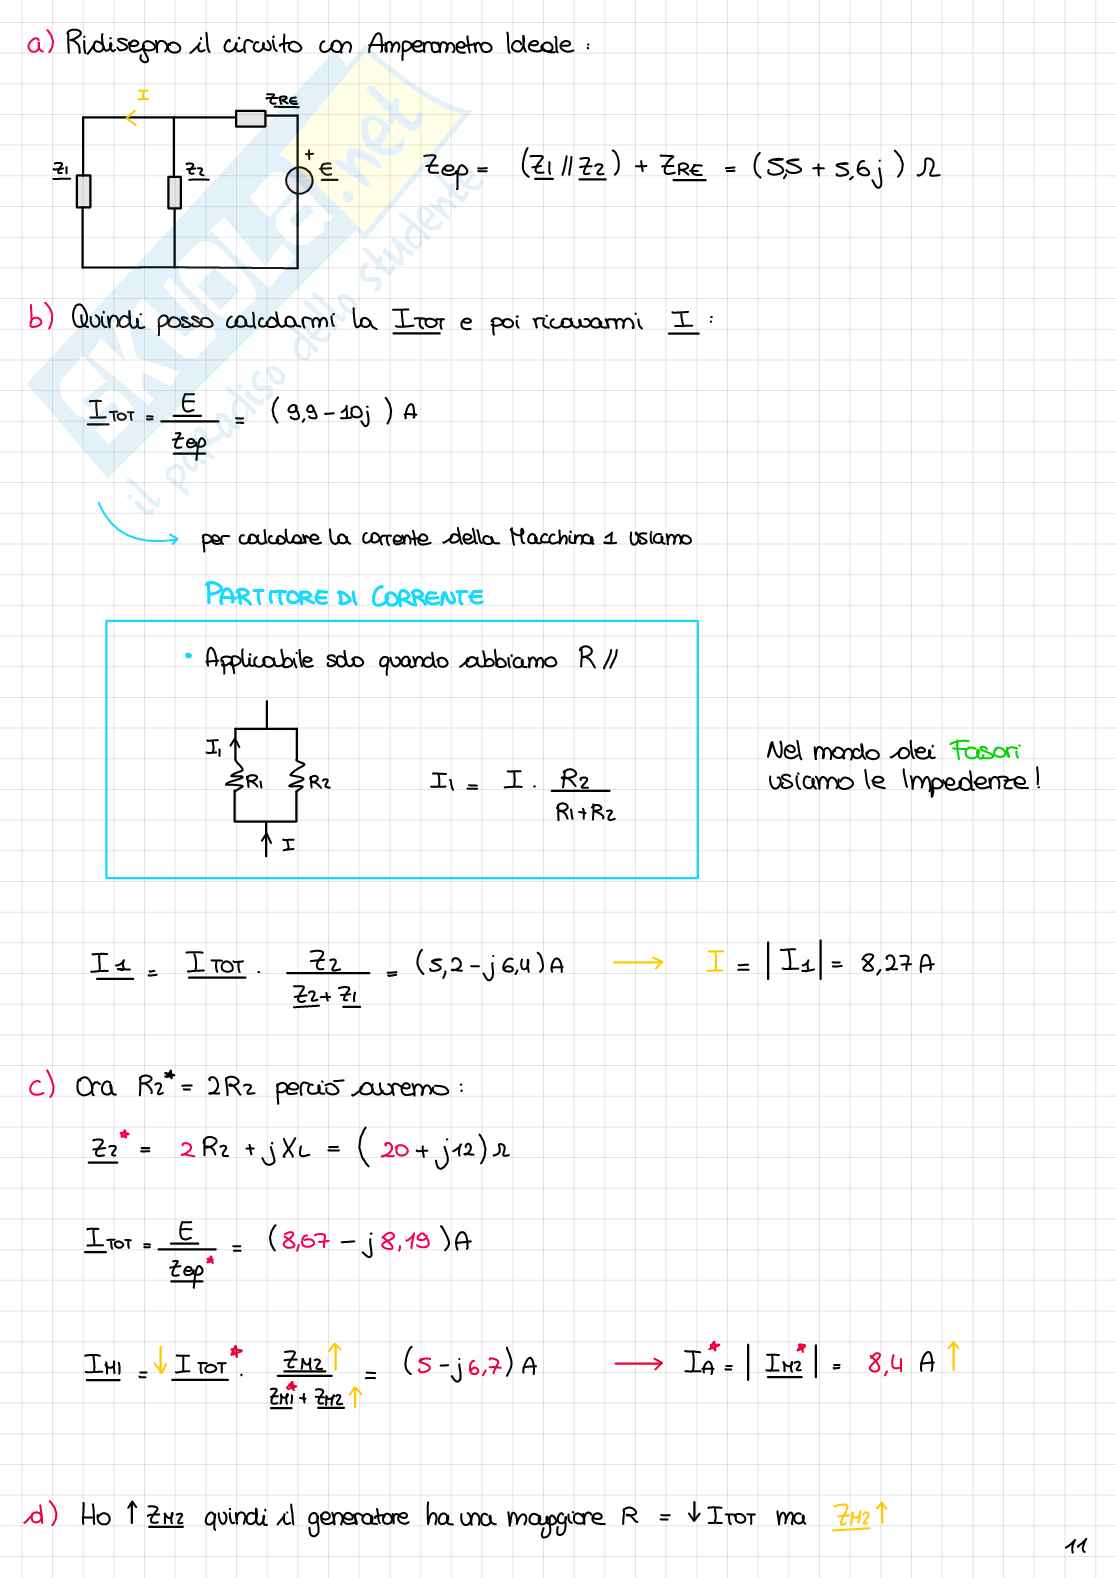 a) Ridisegno il circuito con Amperometro Ideale :
I
ZRE
Z1
Z2
+
E
Zep = (Z1 // Z2) + ZRE = (5,5 + 5,6j) Ω
b) Quindi posso calcolarmi la ITOT e poi ricavarmi I :
ITOT = E / Zep = (9,9 - 10j) A
per calcolare la corrente della Macchina 1 usiamo
PARTITORE DI CORRENTE
• Applicabile solo quando abbiamo R //
I1
R1
R2
I
I1 = I · R2 / R1+R2
Nel mondo dei Fasori
usiamo le Impedenze!
I1 = ITOT · Z2 / Z2+Z1 = (5,2 - j6,4) A → I = |I1| = 8,27 A
c) Ora R2* = 2R2 perciò avremo :
Z2* = 2 R2 + j XL = (20 + j12) Ω
ITOT = E / Zep* = (8,67 - j 8,19) A
IM1 = ↓ ITOT* · ZM2↑ / ZM1* + ZM2↑ = (5 - j6,7) A → IA* = |IM2*| = 8,4 A ↑
d) Ho ↑ ZM2 quindi il generatore ha una maggiore R = ↓ ITOT ma ZM2 ↑
11
SKUOLA.net
il paradiso dello studente